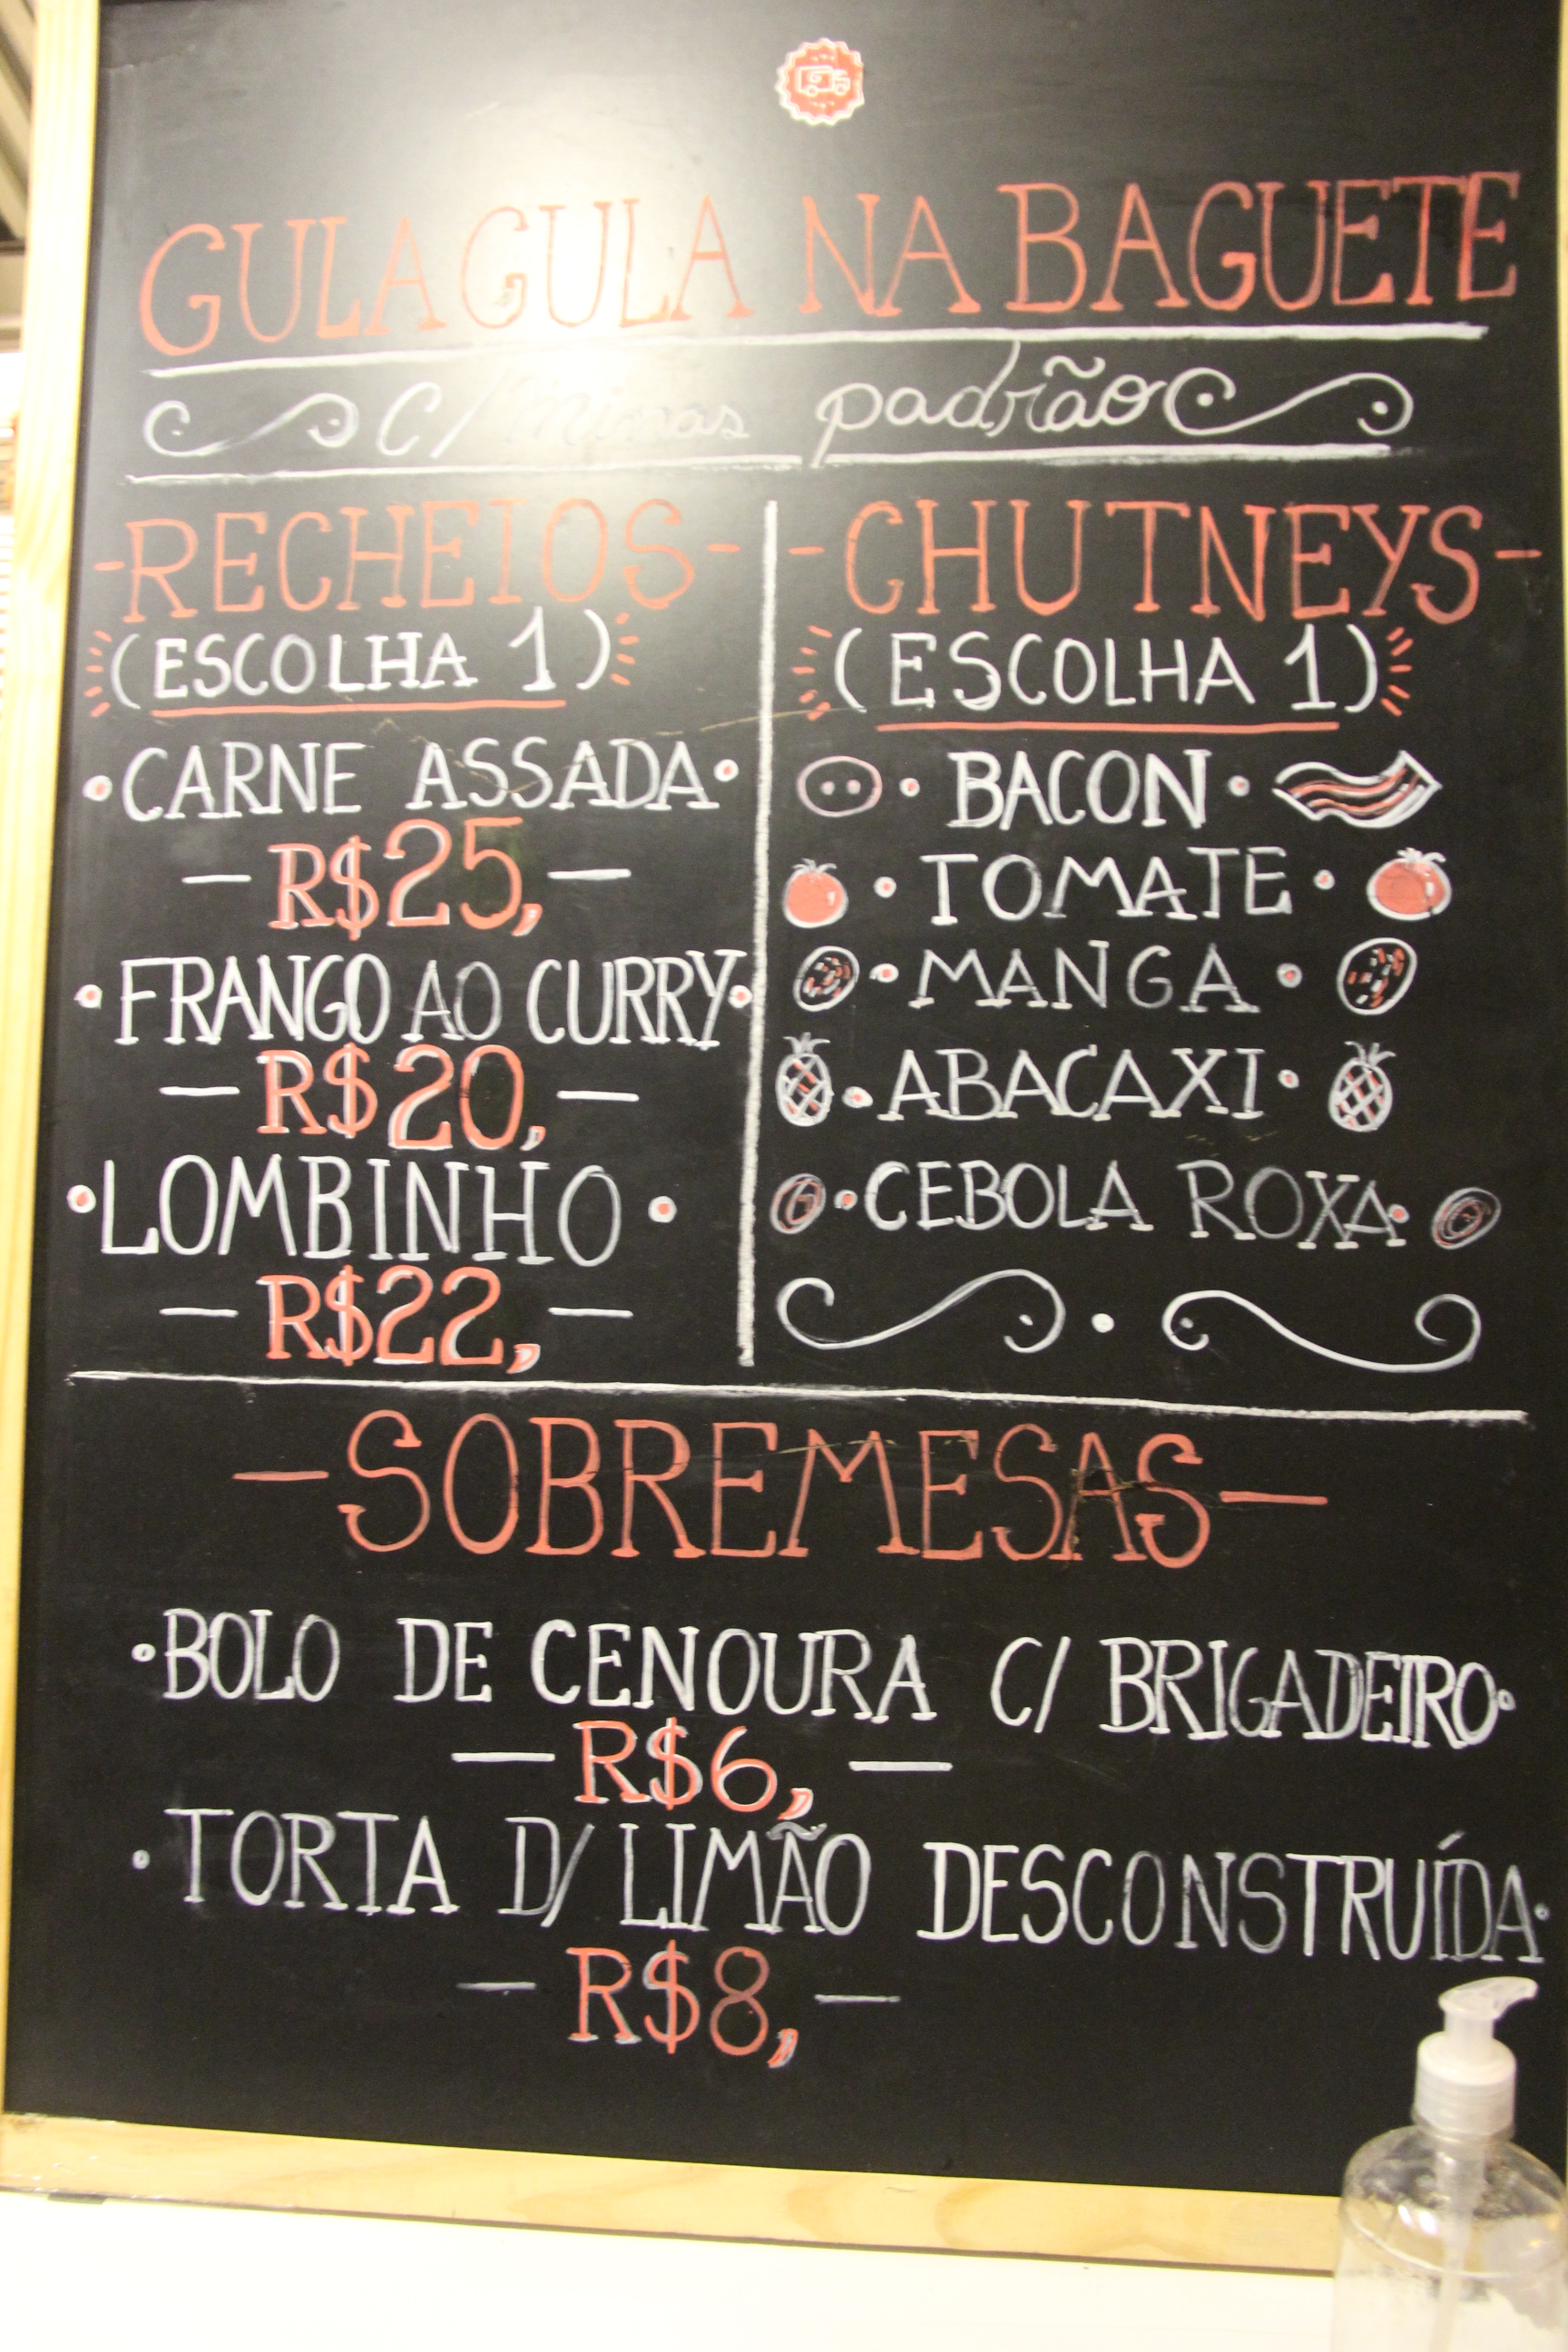 GULA GULA NA BAGUETE
C/ Minas padrão
-RECHEIOS-
(ESCOLHA 1)
•CARNE ASSADA•
— R$25, —
•FRANGO AO CURRY•
— R$20, —
•LOMBINHO•
— R$22, —
-CHUTNEYS-
(ESCOLHA 1)
•BACON•
•TOMATE•
•MANGA•
•ABACAXI•
•CEBOLA ROXA•
—SOBREMESAS—
•BOLO DE CENOURA C/ BRIGADEIRO•
— R$6, —
•TORTA D/ LIMÃO DESCONSTRUÍDA•
— R$8, —